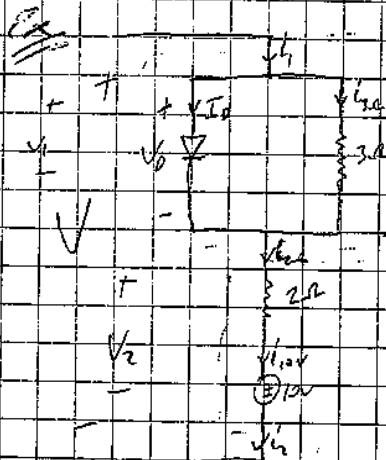 Ex
i₁
+
+ + I_D i_3Ω
V₁ V_D 3Ω
- -
V
- i_2Ω
+ 2Ω
V₂ i_10V
- 10V
- - i₂